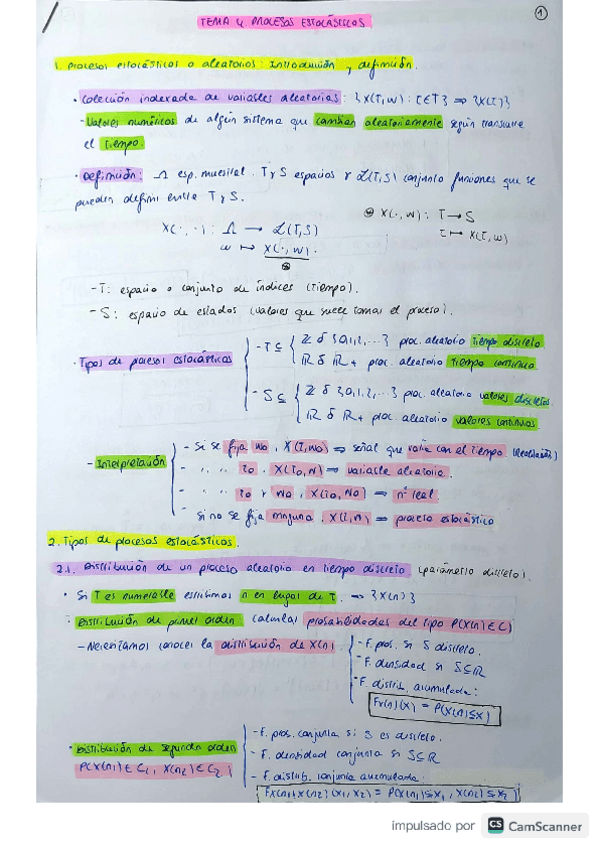 ①
TEMA 4. PROCESOS ESTOCÁSTICOS
1. Procesos estocásticos o aleatorios: Introducción y definición.
• Colección indexada de variables aleatorias: {X(t,w): t∈T} ⇒ {X(t)}
- Valores numéricos de algún sistema que cambian aleatoriamente según transcurre
el tiempo.
• Definición: Ω esp. muestral. T y S espacios y 𝓛(T,S) conjunto funciones que se
pueden definir entre T y S.
X(·,·): Ω → 𝓛(T,S)
⊛ X(·,w): T → S
w ↦ X(·,w).
t ↦ X(t,w)
⊛
- T: espacio o conjunto de índices (tiempo).
- S: espacio de estados (valores que puede tomar el proceso).
• Tipos de procesos estocásticos
- T ⊆ { ℤ ó {0,1,2,...} proc. aleatorio tiempo discreto
ℝ ó ℝ+ proc. aleatorio tiempo continuo
- S ⊆ { ℤ ó {0,1,2,...} proc. aleatorio valores discretos
ℝ ó ℝ+ proc. aleatorio valores continuos
- Interpretación
- Si se fija w0, X(t,w0) ⇒ señal que varía con el tiempo
- " " t0, X(t0,w) ⇒ variable aleatoria.
- " " t0 y w0, X(t0,w0) ⇒ nº real.
- si no se fija ninguna, X(t,w) ⇒ proceso estocástico
2. Tipos de procesos estocásticos.
2.1. Distribución de un proceso aleatorio en tiempo discreto (parámetro discreto).
• Si T es numerable escribimos n en lugar de t. ⇒ {X(n)}
• Distribución de primer orden: calcular probabilidades del tipo P(X(n)∈C)
- Necesitamos conocer la distribución de X(n)
- F. prob. si S discreto.
- F. densidad si S⊆ℝ
- F. distrib. acumulada:
Fx(n)(x) = P(X(n)≤x)
• Distribución de segundo orden
P(X(n1)∈C1, X(n2)∈C2)
- F. prob. conjunta si S es discreto.
- F. densidad conjunta si S⊆ℝ
- F. distrib. conjunta acumulada:
Fx(n1)x(n2)(x1,x2) = P(X(n1)≤x1, X(n2)≤x2)
impulsado por CS CamScanner